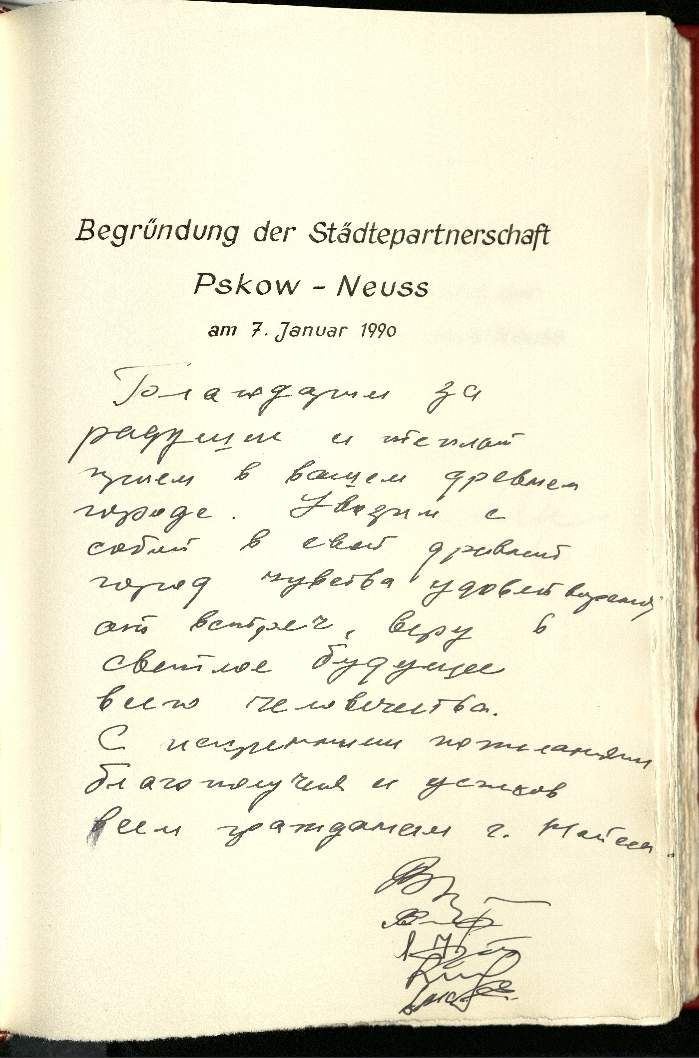 Begründung der Städtepartnerschaft
Pskow - Neuss
am 7. Januar 1990
Благодарим за
радушие и теплый
прием в вашем древнем
городе. Увозим с
собой в свой древний
город чувства удовлетворения
от встреч, веру в
светлое будущее
всего человечества.
С искренними пожеланиями
благополучия и успехов
всем гражданам г. Нойсса.